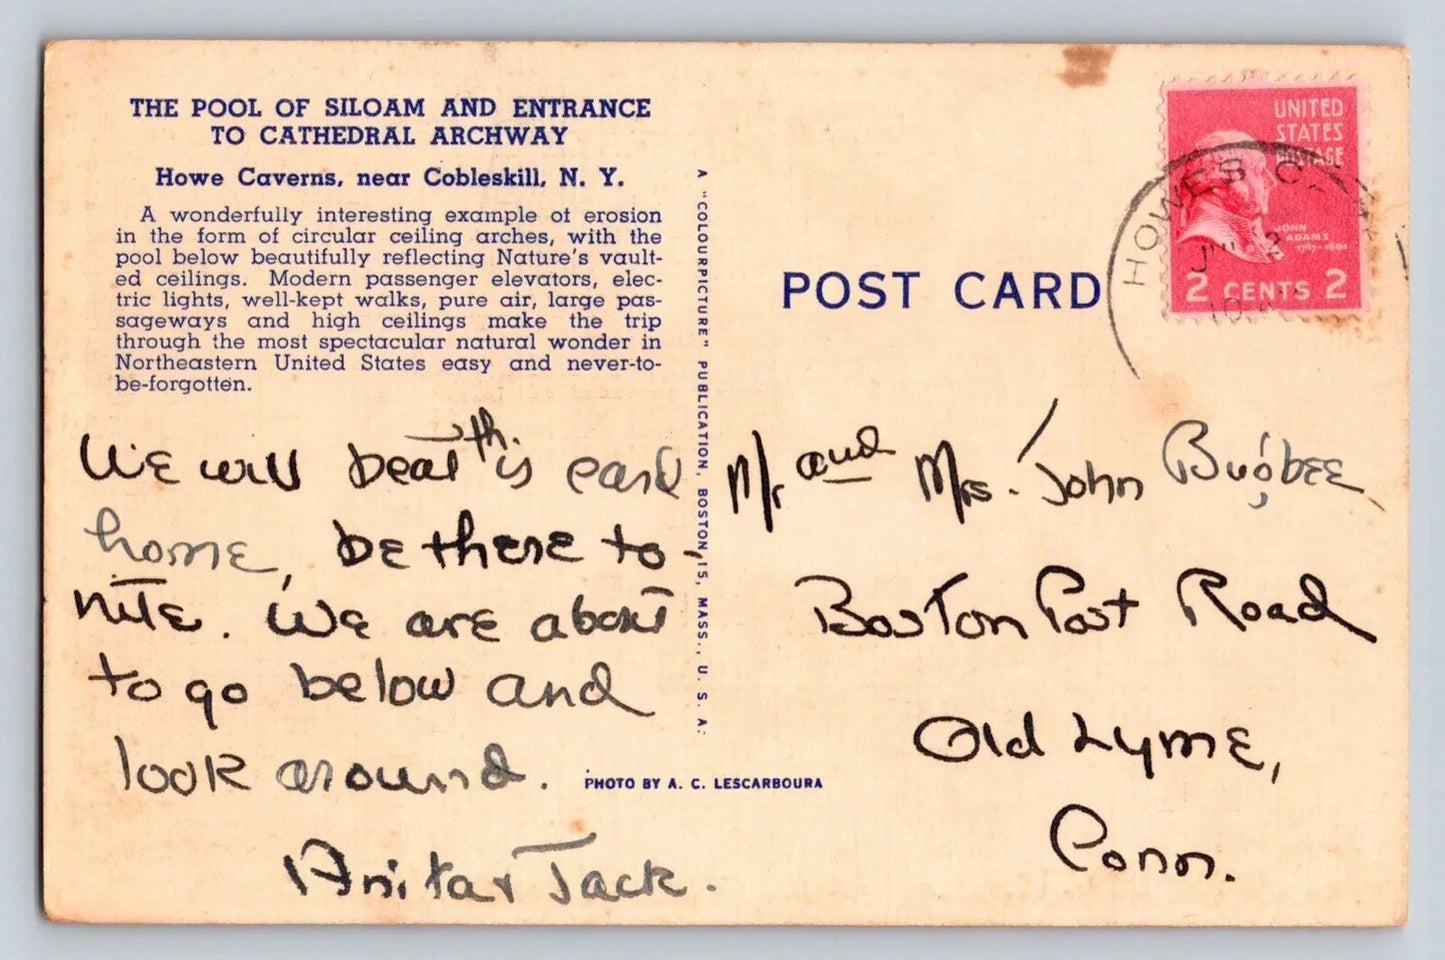 THE POOL OF SILOAM AND ENTRANCE
TO CATHEDRAL ARCHWAY
Howe Caverns, near Cobleskill, N. Y.
A wonderfully interesting example of erosion
in the form of circular ceiling arches, with the
pool below beautifully reflecting Nature's vault-
ed ceilings. Modern passenger elevators, elec-
tric lights, well-kept walks, pure air, large pas-
sageways and high ceilings make the trip
through the most spectacular natural wonder in
Northeastern United States easy and never-to-
be-forgotten.
We will beat this card
home, be there to-
nite. We are about
to go below and
look around.
Anita + Jack.
A "COLOURPICTURE" PUBLICATION, BOSTON 15, MASS., U. S. A.
PHOTO BY A. C. LESCARBOURA
POST CARD
UNITED
STATES
POSTAGE
JOHN
ADAMS
1797-1801
2 CENTS 2
HOWES
Mr and Mrs. John Bugbee
Boston Post Road
Old Lyme,
Conn.